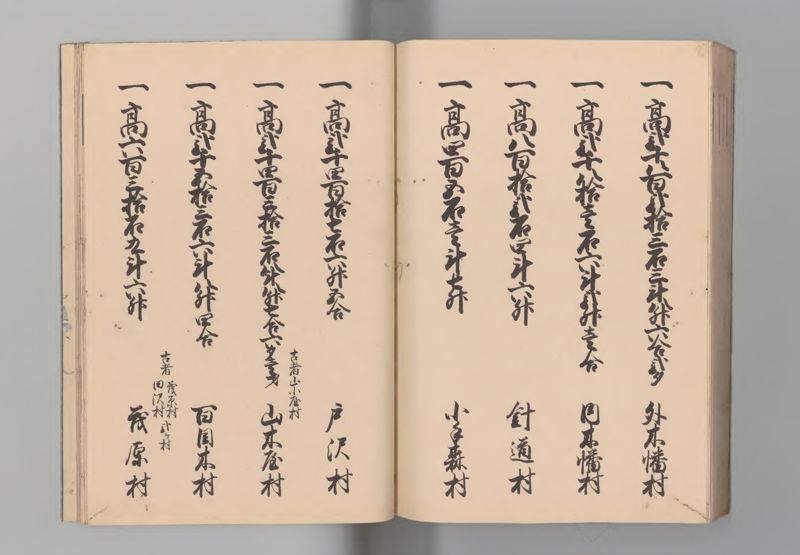 一高弐千八百弐拾三石三斗八升六合弐夕 外木幡村
一高弐千八拾壱石六斗弐升壱合 内木幡村
一高八百拾弐石四斗六升 針道村
一高四百五石壱斗七升 小手森村
一高弐千四百拾七石六升五合 戸沢村
古者山小屋村
一高弐千四百五拾三石八斗八升七合六夕壱才 山木屋村
一高弐千五拾三石六斗八升四合 百目木村
古者 茂原村
田沢村 弐ケ村
一高六百三拾石九斗六升 茂原村